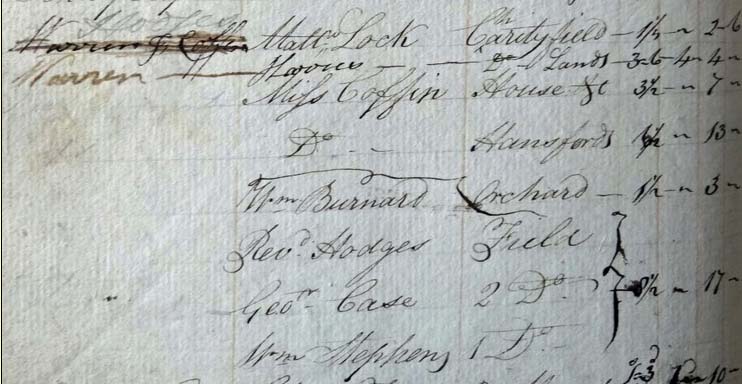 Warren Mattw Lock Charityfield - 1½ " 2-6
Warren - Do - Lands - 3-6 4-4-
Miss Coffin House &c 3½ " 7 "
Do - Hansfords 6½ " 13 "
Wm Burnard Orchard - 1½ " 3 "
Revd Hodges Field
Geor Case 2 Do - 8½ " 17 "
Wm Stephens 1 Do -